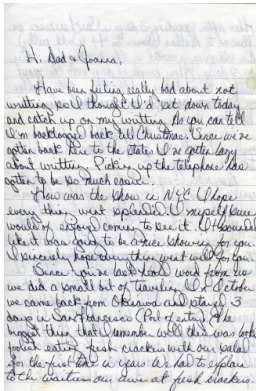 Hi Dad & Joanna,
Have been feeling really bad about not
writting so I thought I'd set down today
and catch up on my writting. As you can tell
I'm backlogged back till Christmas. Since we've
gotten back to the states I've gotten lazy
about writting. Picking up the telephone has
gotten to be so much easier.
How was the show in NYC. I hope
every thing went splended. I myself sure
would of enjoyed coming to see it. It sounded
like it was going to be a nice showing for you.
I sincerely hope everything went well for you.
Since you've last heard word from us
we did a small bit of traveling. In October
we came back from Okinawa and stayed 3
days in San Francisco (Port of entry). The
biggest thing that I remember well this was
eating fresh crackers with our salad
for the first time in years. We had to explain
to the waitress our awe at fresh crackers.